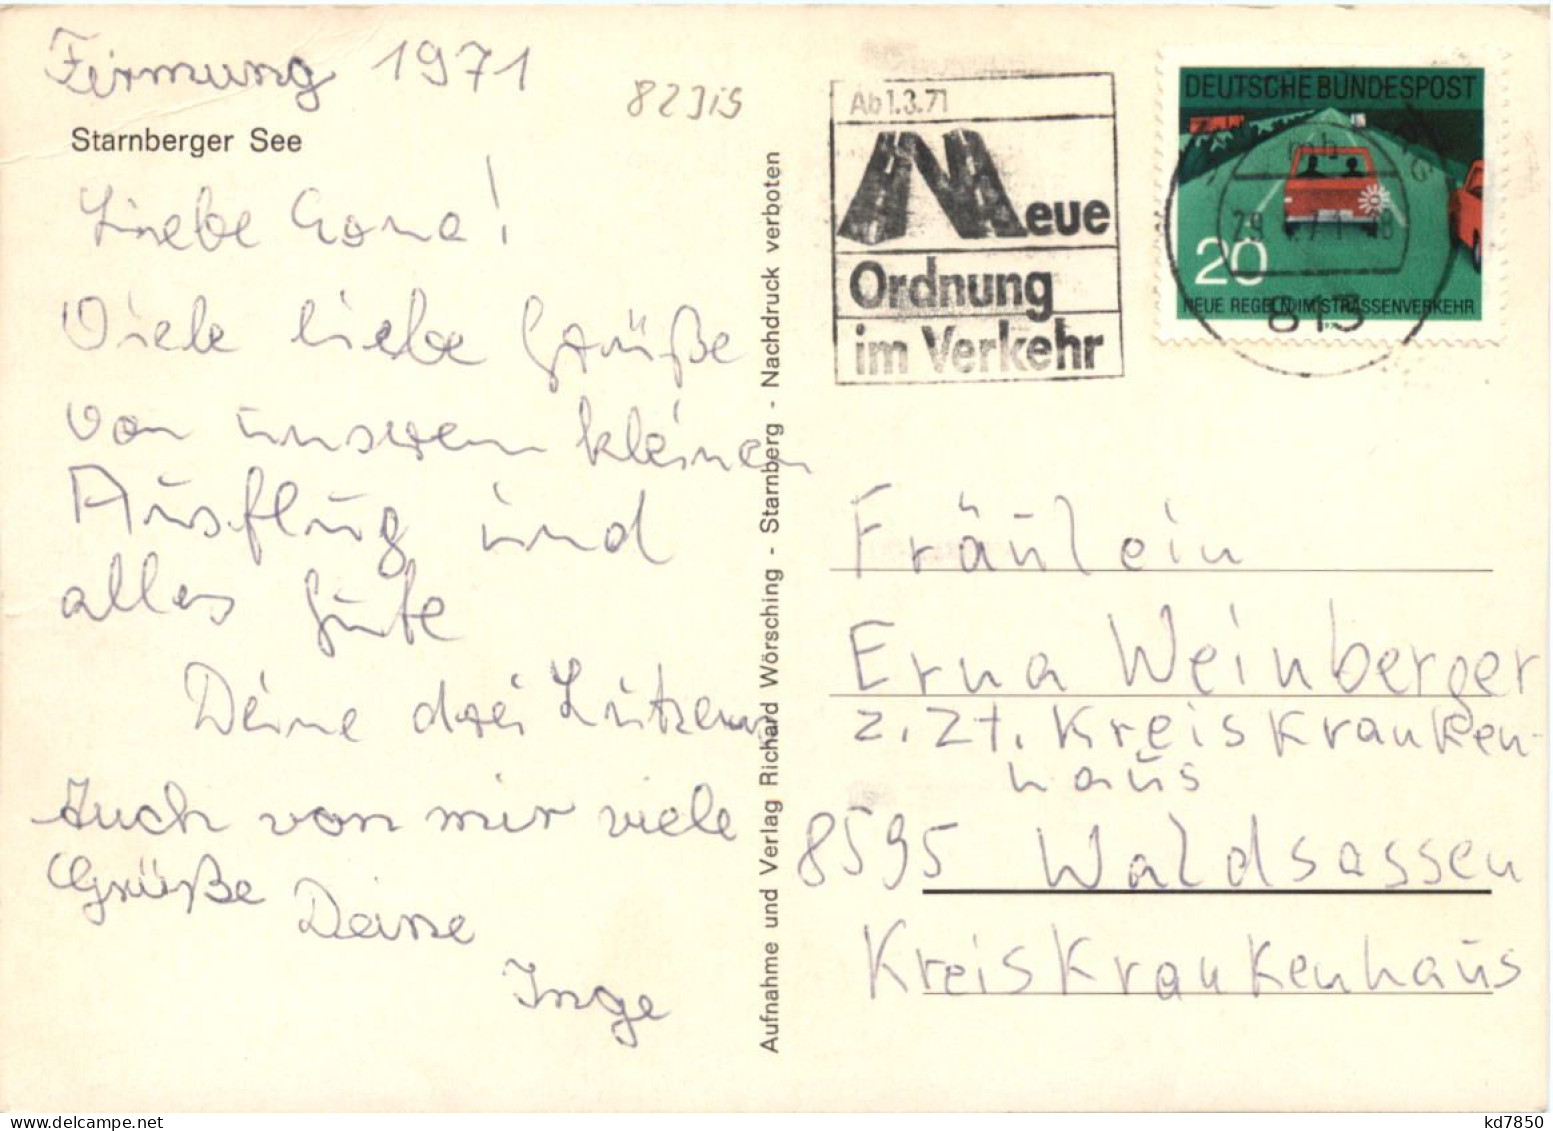 Firmung 1971
Starnberger See
Liebe Erna!
Viele liebe Grüße
von unserem kleinen
Ausflug und
alles Gute
Deine drei
Auch von mir viele
Grüße Deine
Inge
Aufnahme und Verlag Richard Wörsching - Starnberg - Nachdruck verboten
Ab 1.3.71
Neue
Ordnung
im Verkehr
DEUTSCHE BUNDESPOST
20
NEUE REGELN IM STRASSENVERKEHR
813
Fräulein
Erna Weinberger
z. Zt. Kreiskranken-
haus
8595 Waldsassen
Kreiskrankenhaus
kd7850